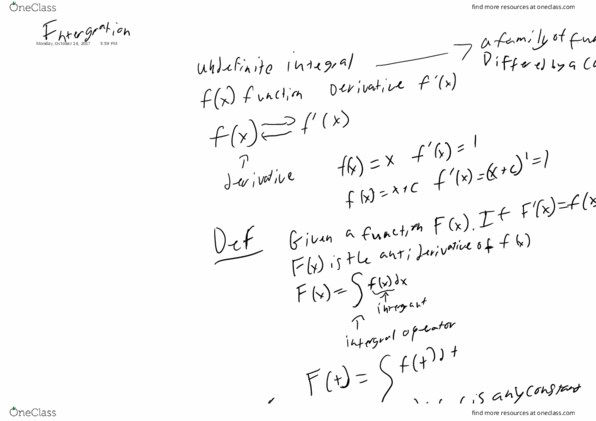 OneClass
find more resources at oneclass.com
Intergration
Monday, October 16, 2017 5:59 PM
undefinite integral → a family of fun
Differed by a Co
f(x) function Derivative f'(x)
f(x) ⇄ f'(x)
↑
derivative
f(x) = x f'(x) = 1
f(x) = x+c f'(x) = (x+c)' = 1
Def Given a function F(x). If F'(x)=f(x
F(x) is the antiderivative of f(x)
F(x) = ∫ f(x) dx
↑ integrant
↑
intergral operator
F(t) = ∫ f(t) dt
c is any constant
OneClass
find more resources at oneclass.com